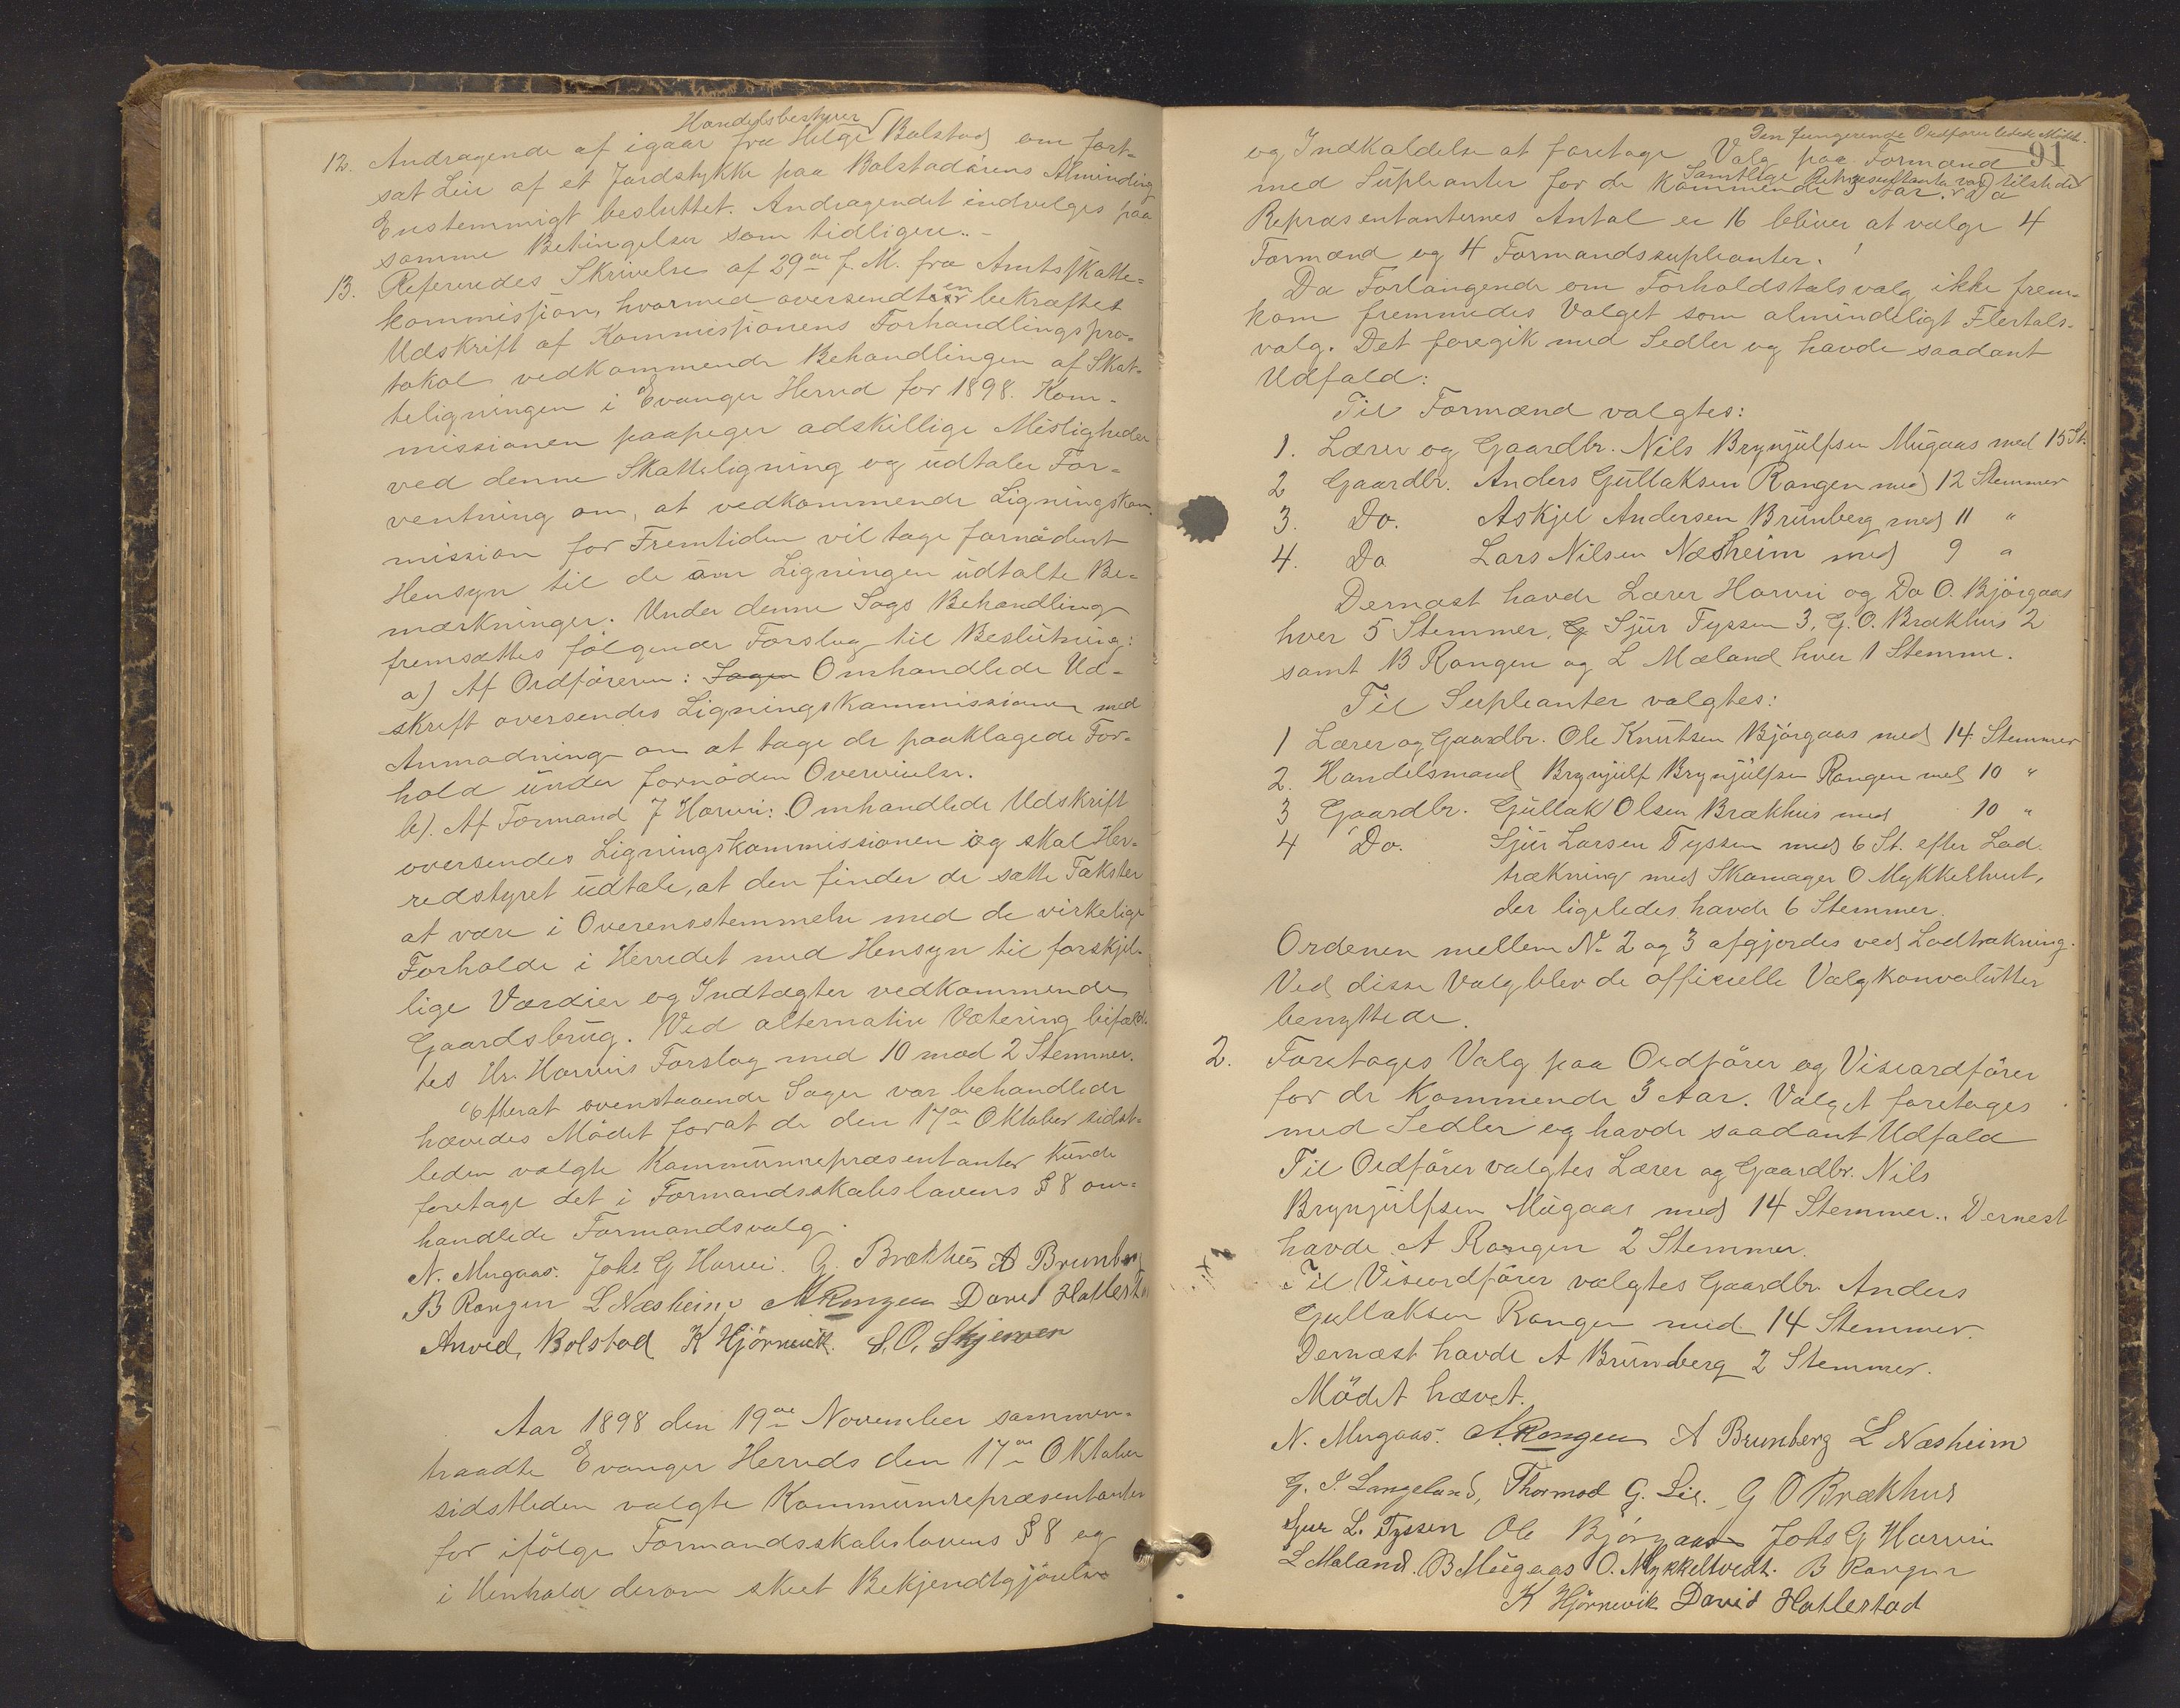 Handelsbestyrer
12. Andragende af igaar fra Helge Bolstad om fort-
sat Leie af et Jordstykke paa Bolstadørens Alminding
Enstemmigt besluttet. Andragendet indvilges paa
samme Betingelser som tidligere.. -
13. Refereredes Skrivelse af 29de f. M. fra Amtsskatte-
kommission, hvormed oversendtes en bekræftet
Udskrift af Kommissionens Forhandlingspro-
tokol vedkommende Behandlingen af Skat-
teligningen i Evanger Herred for 1898. Kom-
missionen paapeger adskillige Misligheder
ved denne Skatteligning og udtaler For-
ventning om, at vedkommende Ligningskom-
mission for Fremtiden vil tage fornødent
Hensyn til de om Ligningen udtalte Be-
mærkninger. Under denne Sags Behandling
fremsattes følgende Forslag til Beslutning:
a) Af Ordføreren: Sagen Omhandlede Ud-
skrift oversendes Ligningskommissionen med
Anmodning om at tage de paaklagede For-
hold under fornøden Overveielse.
b). Af Formand J Horvei: Omhandlede Udskrift
oversendes Ligningskommissionen og skal Her-
redstyret udtale, at den finder de satte Takster
at være i Overensstemmelse med de virkelige
Forholde i Herredet med Hensyn til forskjel-
lige Værdier og Indtægter vedkommende
Gaardsbrug. Ved alternativ Votering bifald-
tes Hr. Horveis Forslag med 10 mod 2 Stemmer.
Efterat ovenstaaende Sager var behandlede
hævedes Mödet forat de den 17de Oktober sidst-
leden valgte Kommunerepræsentanter kunde
foretage det i Formandsskabslovens § 8 om-
handlede Formandsvalg.
N. Mugaas. Johs G Horvei. G. Brækhus A Brunberg
B Rongen L Næsheim A Rongen David Hatlestad
Anved Bolstad K Hjörnevik. S. O. Skjerven
Aar 1898 den 19de November sammen-
traadte Evanger Herreds den 17de Oktober
sidstleden valgte Kommunerepræsentanter
for ifølge Formandsskabslovens § 8 og
i Henhold derom skeet Bekjendtgjörelse
91
Den fungerende Ordfører ledede Mödet.
og Indkaldelse at foretage Valg paa Formænd
Samtlige Repræsentanter var tilstede
med Supleanter for de kommende 3 Aar. Da
Repræsentanternes Antal er 16 bliver at vælge 4
Formænd og 4 Formandssupleanter.
Da Forlangende om Forholdstalsvalg ikke frem-
kom fremmedes Valget som almindeligt Flertals-
valg. Det foregik med Sedler og havde saadant
Udfald:
Til Formænd valgtes:
1. Lærer og Gaardbr. Nils Brynjulfsen Mugaas med 15 St.
2 Gaardbr. Anders Gullaksen Rongen med 12 Stemmer
3. Do. Askjel Andersen Brunberg med 11 "
4. Do Lars Nilsen Næsheim med 9 "
Dernæst havde Lærer Horvei og Do O. Bjørgaas
hver 5 Stemmer, G Sjur Tyssen 3, G. O. Brækhus 2
samt B Rongen og L Mæland hver 1 Stemme.
Til Supleanter valgtes:
1 Lærer og Gaardbr. Ole Knutsen Bjørgaas med 14 Stemmer
2. Handelsmand Brynjulf Brynjulfsen Rongen med 10 "
3 Gaardbr. Gullak Olsen Brækhus med 10 "
4 Do. Sjur Larsen Tyssen med 6 St. efter Lod-
trækning med Skomager O Mykkeltveit,
der ligeledes havde 6 Stemmer.
Ordenen mellem No 2 og 3 afgjordes ved Lodtrækning.
Ved disse Valg blev de officielle Valgkonvolutter
benyttede.
2. Foretoges Valg paa Ordfører og Viseordfører
for de kommende 3 Aar. Valget foretoges
med Sedler og havde saadant Udfald
Til Ordfører valgtes Lærer og Gaardbr. Nils
Brynjulfsen Mugaas med 14 Stemmer.. Dernest
havde A Rongen 2 Stemmer.
Til Viseordfører valgtes Gaardbr. Anders
Gullaksen Rongen med 14 Stemmer.
Dernæst havde A Brunberg 2 Stemmer.
Mödet hævet.
N. Mugaas. A. Rongen A Brunberg L Næsheim
G. I. Langeland, Thormod G. Lie. G O Brækhus
Sjur L. Tyssen Ole Bjørgaas Johs G Horvei
L Mæland. B Mugaas O. Mykkeltvedt. B Rongen
K Hjörnevik David Hatlestad